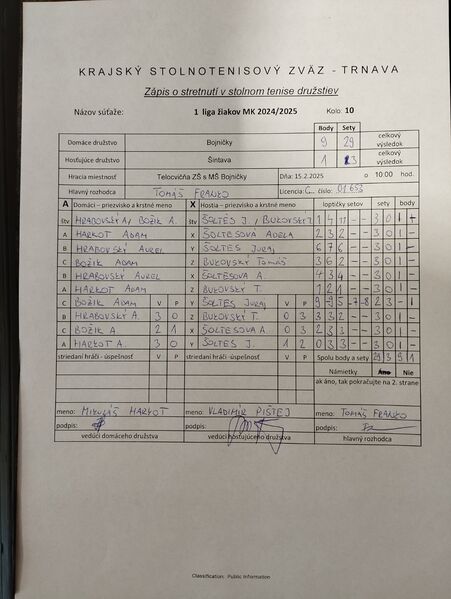 KRAJSKÝ STOLNOTENISOVÝ ZVÄZ - TRNAVA
Zápis o stretnutí v stolnom tenise družstiev
Názov súťaže: 1 liga žiakov MK 2024/2025 Kolo: 10
Body Sety
Domáce družstvo Bojničky 9 29 celkový výsledok
Hosťujúce družstvo Šintava 1 celkový výsledok
Hracia miestnosť Telocvičňa ZŠ s MŠ Bojničky Dňa: 15.2.2025 o 10:00 hod.
Hlavný rozhodca TOMÁŠ FRANKO Licencia:C.. číslo: 01653
A Domáci – priezvisko a krstné meno X Hostia – priezvisko a krstné meno loptičky setov sety body
štv HRABOVSKÝ A, BOŽIK A. štv ŠOLTES J., BUKOVSKÝ T 1 4 11 - - 3 0 1 -
A HARKOT ADAM X ŠOLTESOVÁ ADELA 2 3 2 - - 3 0 1 -
B HRABOVSKÝ AUREL Y ŠOLTES JURAJ 6 7 6 - - 3 0 1 -
C BOŽIK ADAM Z BUKOVSKÝ TOMÁŠ 3 6 2 - - 3 0 1 -
B HRABOVSKÝ AUREL X ŠOLTESOVÁ A. 4 3 4 - - 3 0 1 -
A HARKOT ADAM Z BUKOVSKÝ T. 1 2 1 - - 3 0 1 -
C BOŽIK ADAM V P Y ŠOLTES JURAJ V P 9 -9 5 -7 -8 2 3 - 1
B HRABOVSKÝ A. 3 0 Z BUKOVSKÝ T. 0 3 3 3 2 - - 3 0 1 -
C BOŽIK A. 2 1 X ŠOLTESOVÁ A. 0 3 2 3 3 - - 3 0 1 -
A HARKOT A. 3 0 Y ŠOLTES J. 1 2 - - 3 0 1 -
striedaní hráči -úspešnosť V P striedaní hráči -úspešnosť V P Spolu body a sety 29 3 9 1
Námietky Áno Nie
ak áno, tak pokračujte na 2. strane
meno: MIKULÁŠ HARKOT meno: VLADIMÍR PIŠTEJ meno: TOMÁŠ FRANKO
podpis: podpis: podpis:
vedúci domáceho družstva vedúci hosťujúceho družstva hlavný rozhodca
Classification: Public Information